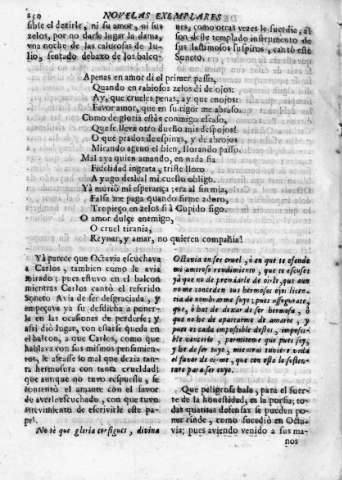 NOVELAS EXEMPLARES
sible el dezirle, ni su amor, ni sus
zelos, por no darse lugar la dama,
una noche de las calurosas de Ju-
lio, sentado debaxo de los balco-
nes, como otras vezes le sucedia, al
son deste templado instrumento de
sus lastimosos suspiros, cantò este
Soneto.
Apenas en amor dì el primer passo,
Quando en rabiosos zelos dì de ojos:
Ay, que crueles penas, ay que enojos:
Favor amor, que en su rigor me abraso.
Como de gloria estàs conmigo escaso,
Que se llevò otro dueño mis despojos!
O que prados de espinas, y de abrojos
Mirando ageno el bien, llorando passo.
Mal aya quien amando, en nada fia
Fidelidad ingrata, triste lloro
A yugo desleal mi cuello obligo.
Yà muriò mi esperança; era al fin mia,
Falsa me paga quando firme adoro,
Tropieço en zelos si à Cupido sigo.
O amor dulce enemigo,
O cruel tirania,
Reynar, y amar, no quieren compañia!
Yà parece que Octavia escuchava
à Carlos, tambien como le avia
mirado; pues estuvo en el balcon
mientras Carlos cantò el referido
Soneto Avia de ser desgraciada, y
empeçava yà su desdicha à poner-
la en las ocasiones de perderse; y
assi diò lugar, con estarse queda en
el balcon, à que Carlos, como que
hablava con sus mismos pensamien-
tos, le afeasse lo mal que dezia tan-
ta hermosura con tanta crueldad;
que aunque no tuvo respuesta, se
contentò el amante con el favor
de averle escuchado, con que tuvo
atrevimiento de escrivirle este pa-
pel.
No sè que gloria consigues, divina
Octavia en ser cruel, ò en que te ofende
mi amoroso rendimiento, que te escuses
yà que no de premiarle de oirle, pues aun
no me conceden tus hermosos ojos licen-
cia de nombrarme tuyo; pues assegurate,
que, ò has de dexar de ser hermosa, ò
que no he de apartarme de amarte, y
pues es cada impossible destos, impossi-
ble vencerle, permiteme que pues soy,
y he de ser tuyo, mientras tuviere vida
el favor de oirme, que con esto lo susten-
tare para ser tuyo.
Que peligrosa bala, para el fuerte
de la honestidad, es la porfia; to-
das quantas defensas se pueden po-
ner rinde, como sucediò en Octa-
via; pues aviendo venido à sus ma-
nos